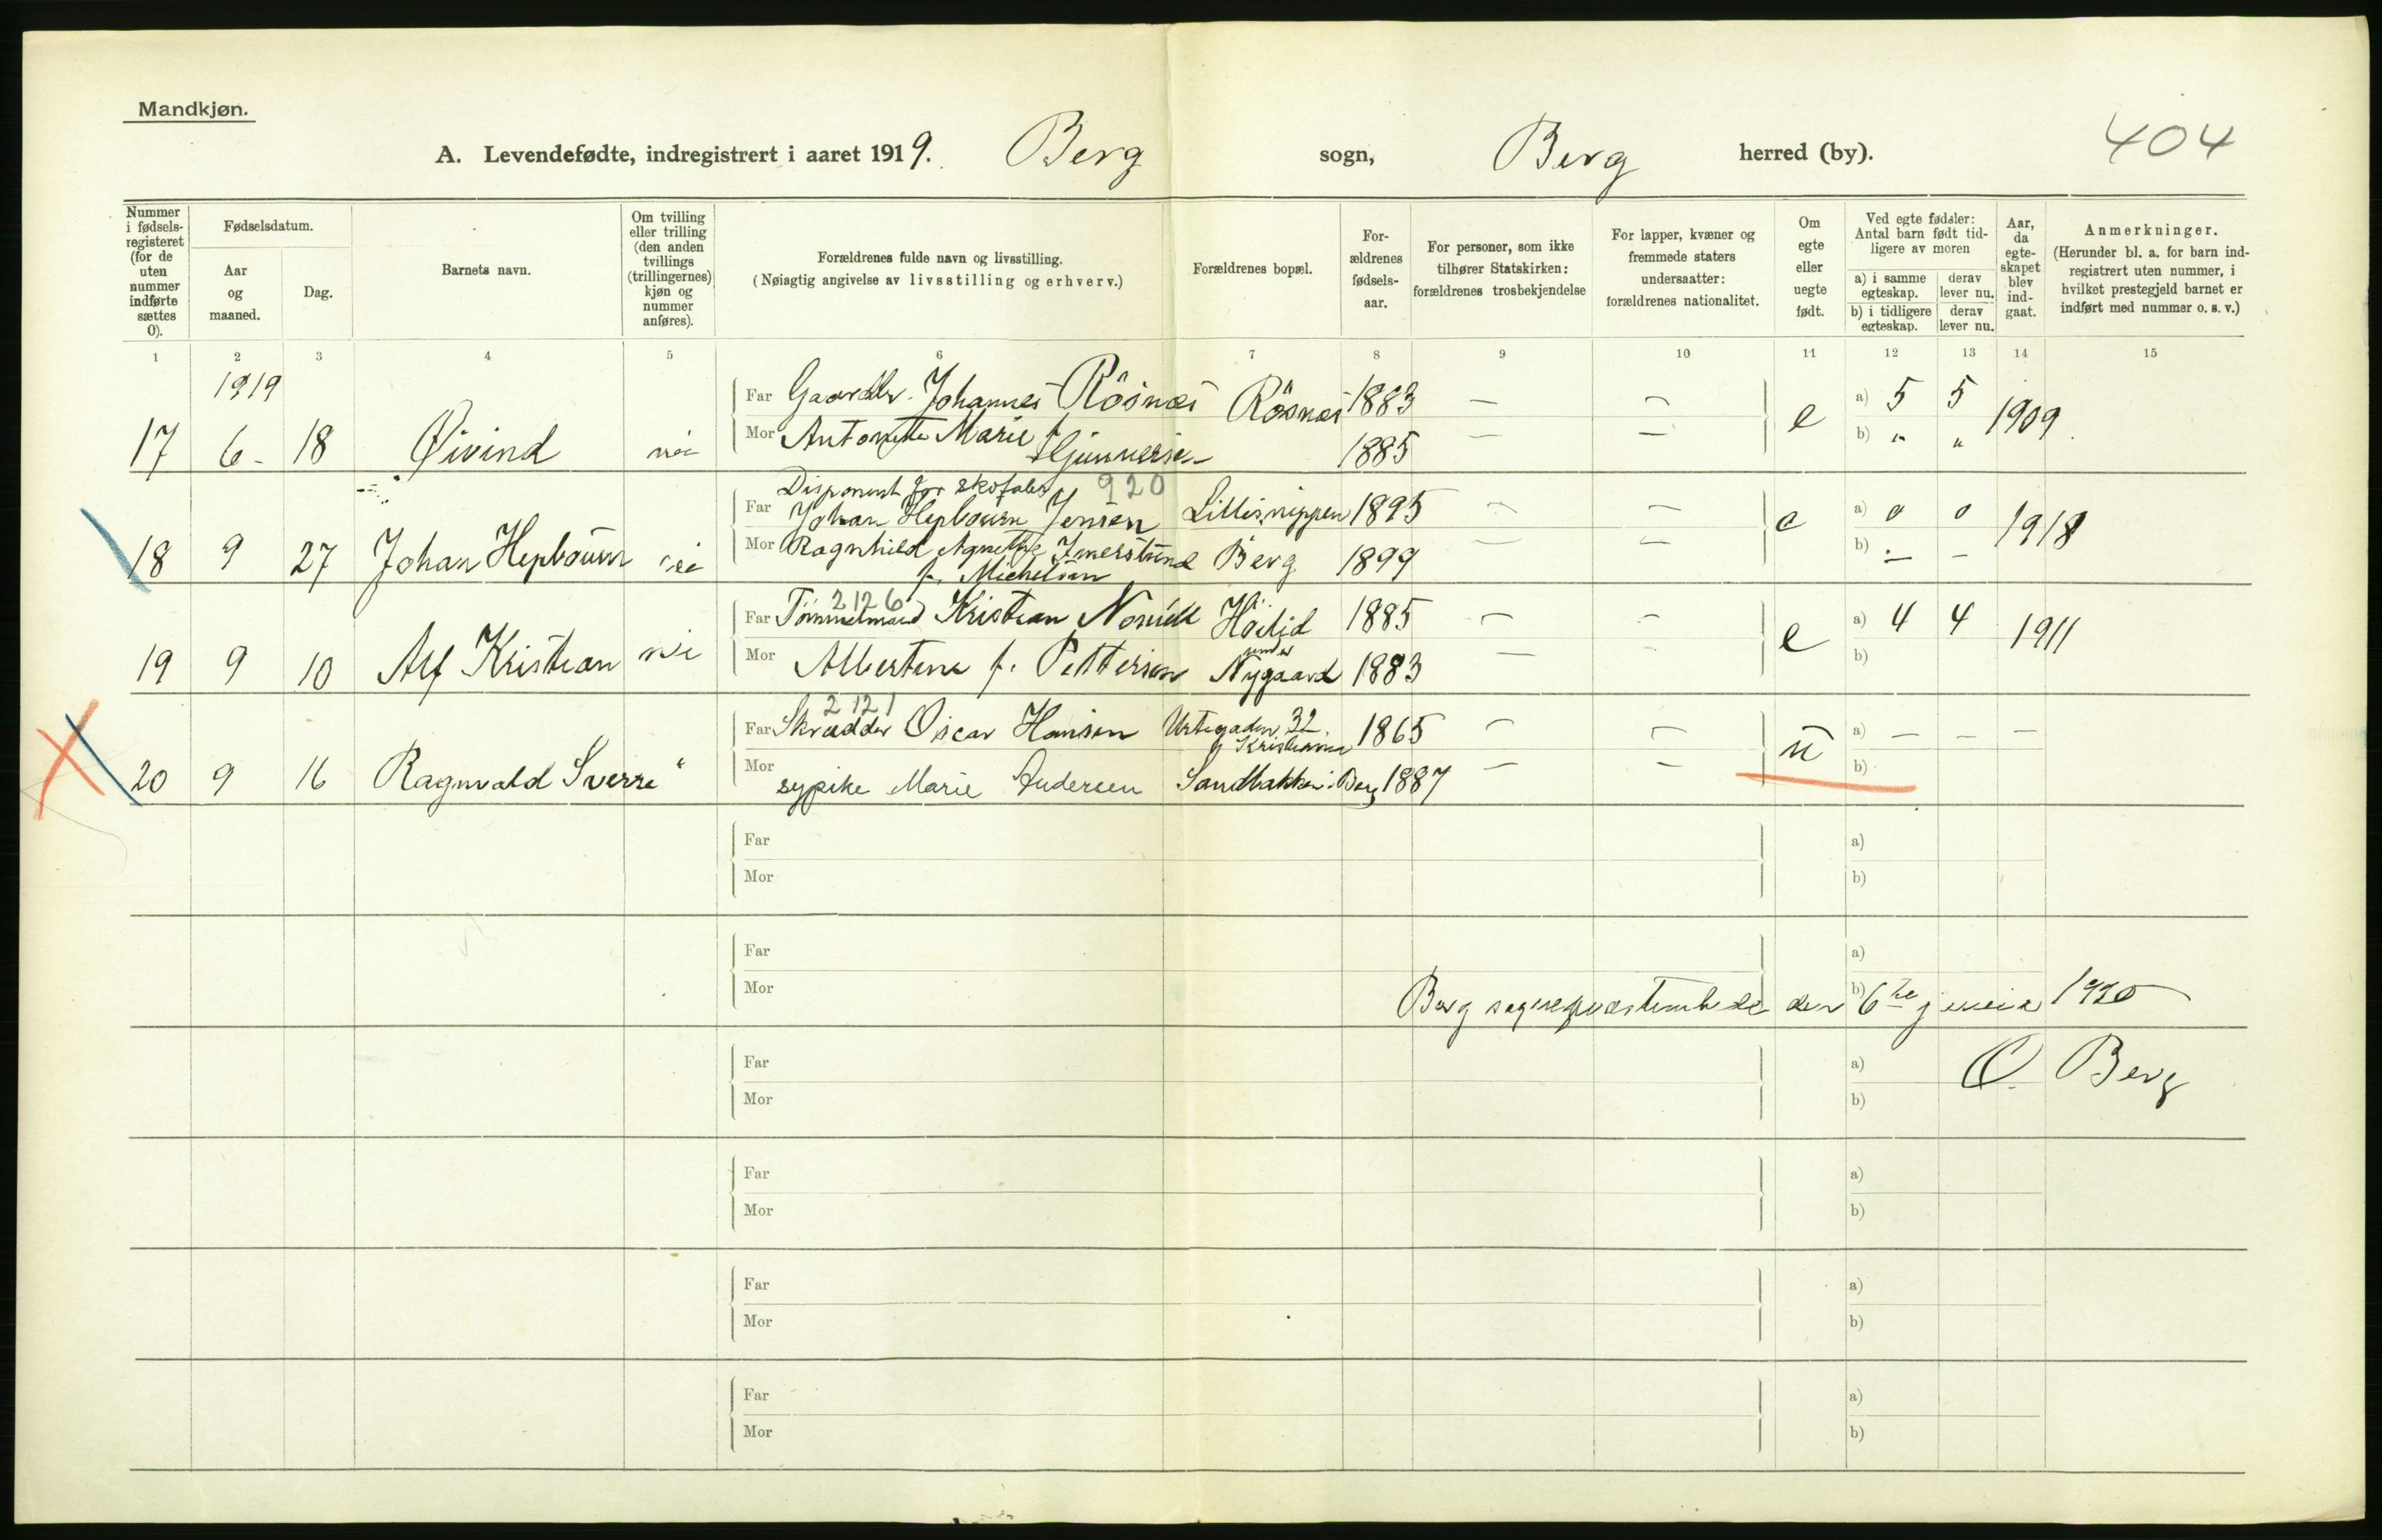 Mandkjøn.
404
A. Levendefødte, indregistrert i aaret 1919. Berg sogn, Berg herred (by).
Nummer i fødsels-registeret (for de uten nummer indførte sættes 0).
Fødselsdatum.
Aar og maaned.
Dag.
Barnets navn.
Om tvilling eller trilling (den anden tvillings (trillingernes) kjøn og nummer anføres).
Forældrenes fulde navn og livsstilling.
(Nøiagtig angivelse av livsstilling og erhverv.)
Forældrenes bopæl.
For-ældrenes fødsels-aar.
For personer, som ikke tilhører Statskirken: forældrenes trosbekjendelse
For lapper, kvæner og fremmede staters undersaatter: forældrenes nationalitet.
Om egte eller uegte født.
Ved egte fødsler: Antal barn født tid-ligere av moren
a) i samme egteskap.
derav lever nu.
b) i tidligere egteskap.
derav lever nu.
Aar, da egte-skapet blev ind-gaat.
Anmerkninger.
(Herunder bl. a. for barn ind-registrert uten nummer, i hvilket prestegjeld barnet er indført med nummer o. s. v.)
1 2 3 4 5 6 7 8 9 10 11 12 13 14 15
1919
Far Johannes Rösnæs Rösnæs 1883 — — e a) 5 5 1909
17 6 - 18 Øivind nei Mor Antonette Marie f. Gunnersen 1885 — — b) " "
Disponent for skofabr 920
Far Johan Hepbourn Jensen Lillesnippen 1895 — — e a) 0 0 1918
18 9 27 Johan Hepbourn nei Mor Ragnhild Agnethe Imerslund Berg 1899 — — b) — —
f. Michelsen
2126
Far Tömmermand Kristian Höilid 1885 — — e a) 4 4 1911
19 9 10 Alf Kristian nei Mor Albertine f. Pettersen under Nygaard 1883 — — b)
2121
Far Skrædder Oscar Hansen Urtegaden 32. Kristiania 1865 — — u a) — — —
20 9 16 Ragnvald Sverre " Mor sypike Marie Andersen Sandbakken i Berg 1887 — — b)
Far a)
Mor b)
Far a)
Mor b)
Berg sogneprestembede den 6te januar 1920
Far a)
O. Berg
Mor b)
Far a)
Mor b)
Far a)
Mor b)
Far a)
Mor b)